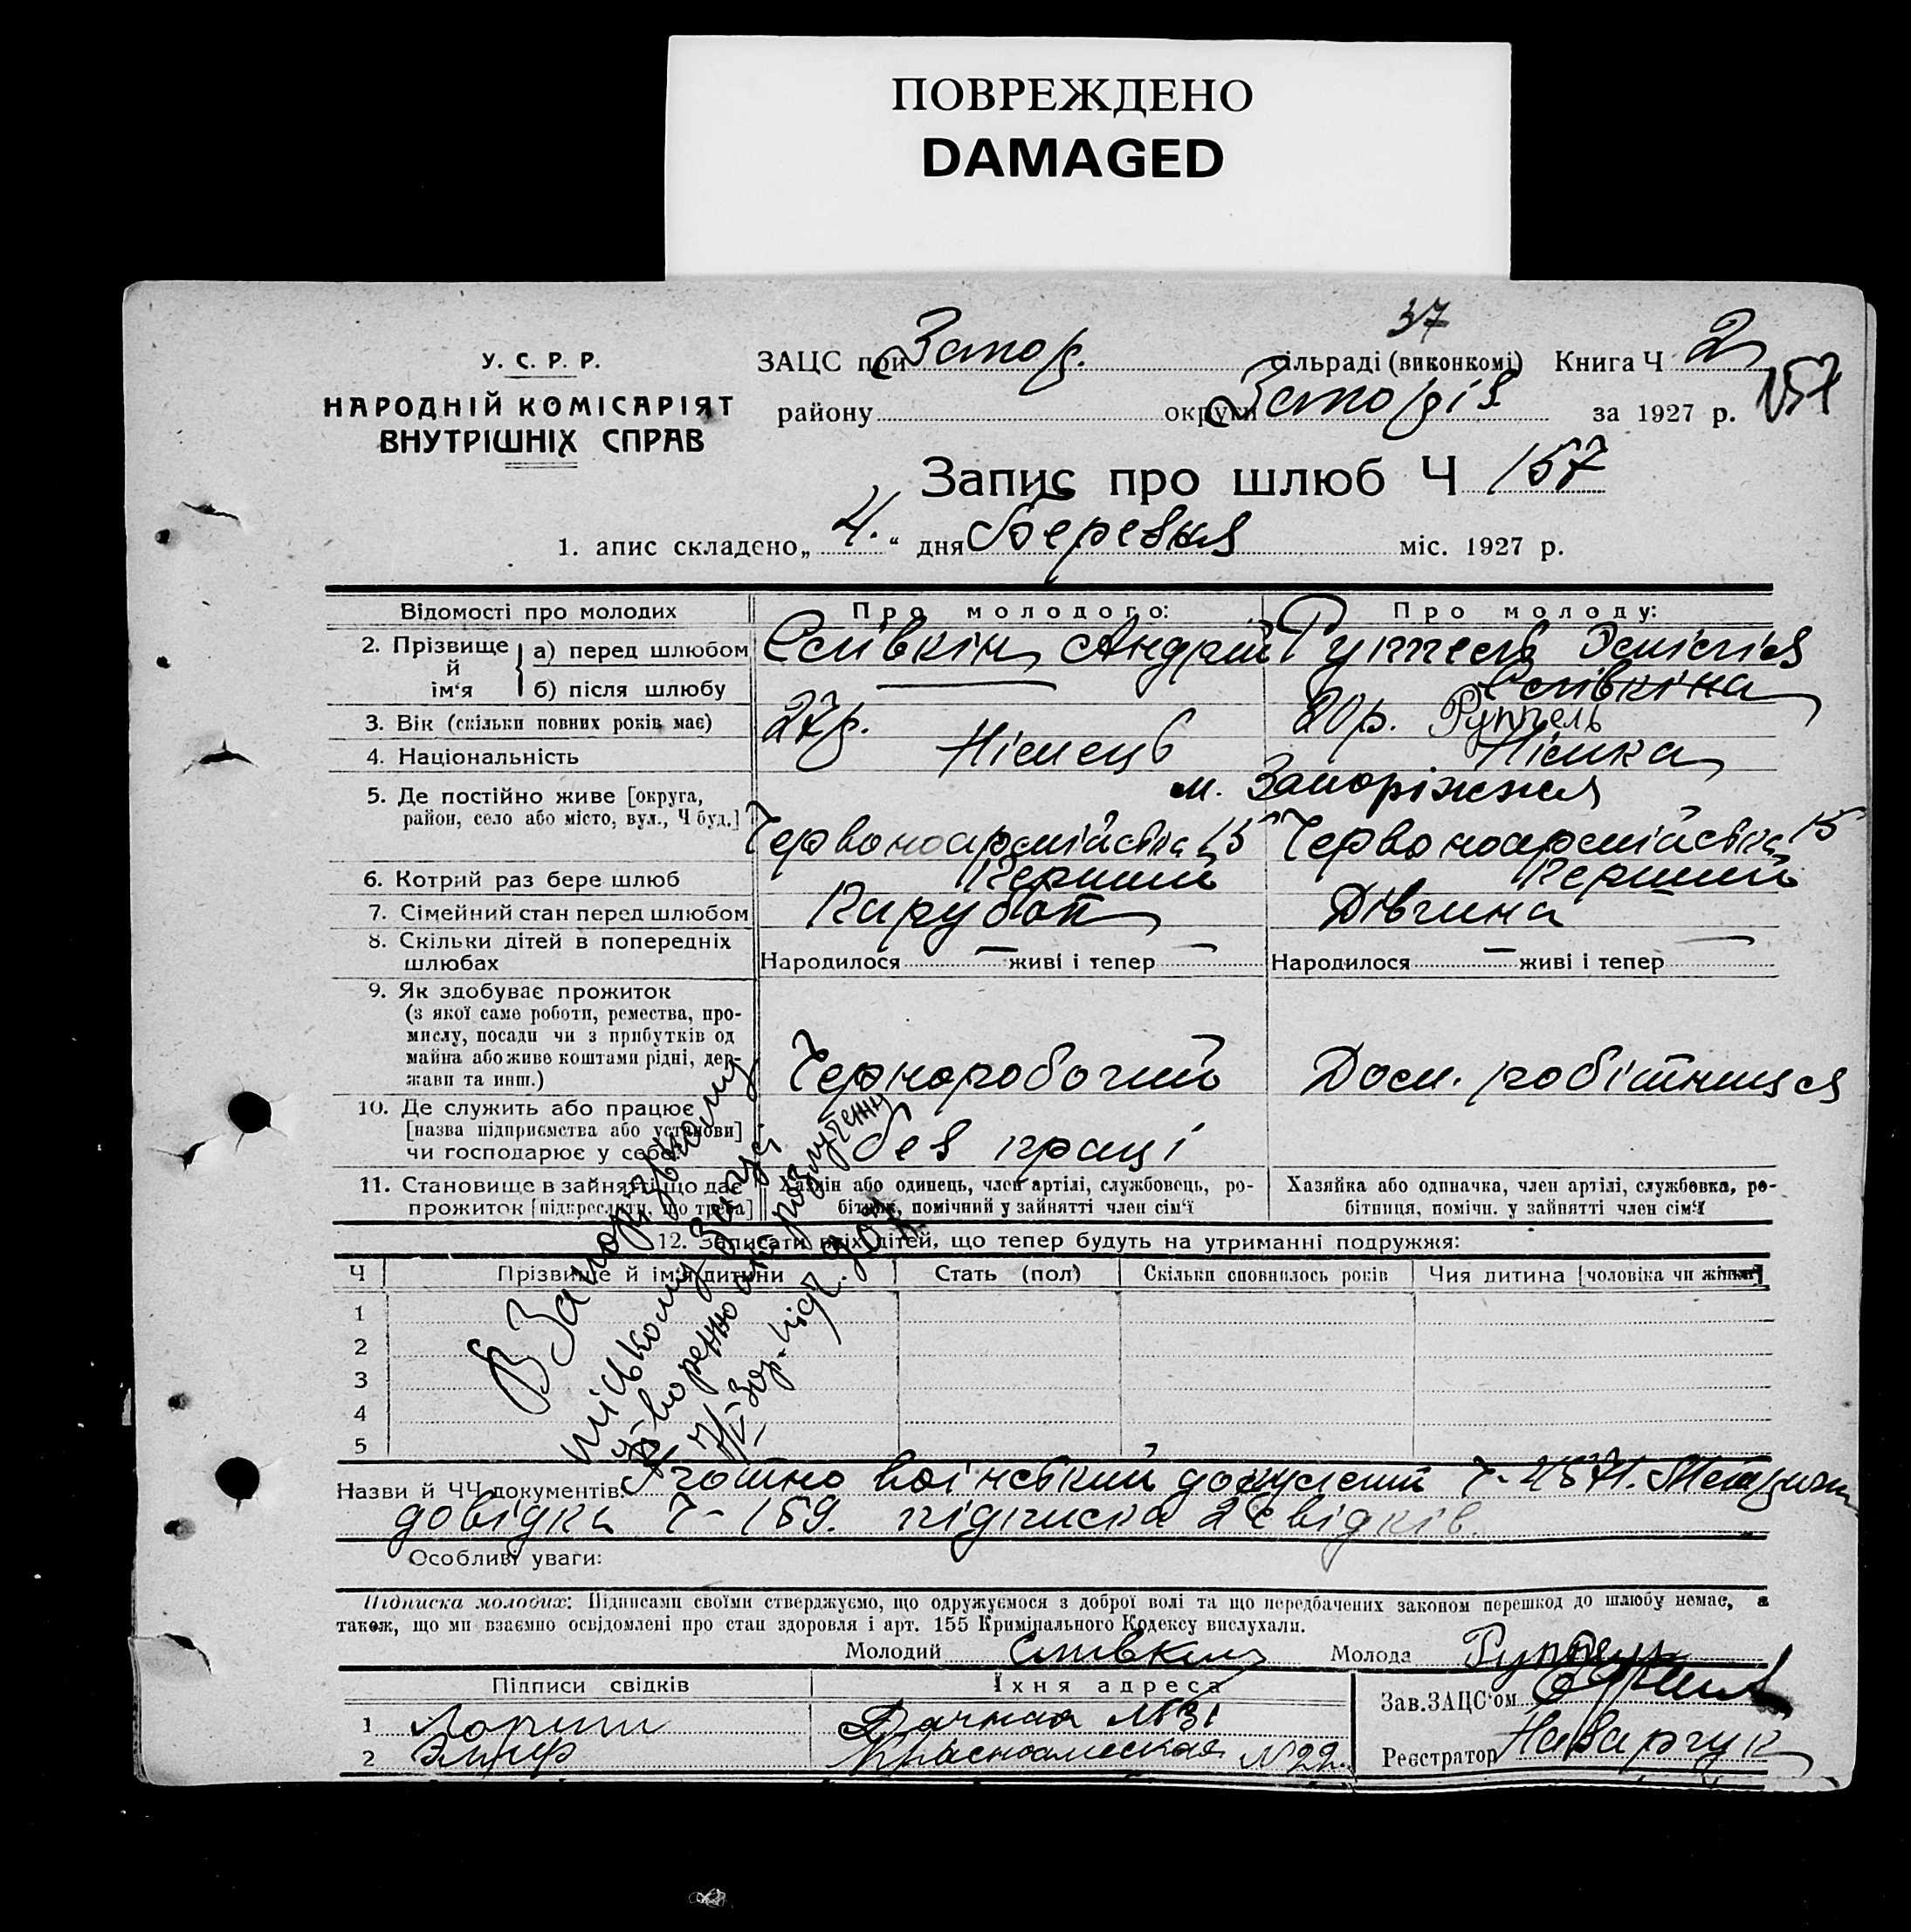 ПОВРЕЖДЕНО
DAMAGED
37
У. С. Р. Р.
НАРОДНІЙ КОМІСАРІЯТ
ВНУТРІШНІХ СПРАВ
ЗАЦС при Запор. сільраді (виконкомі) Книга Ч 2
району округи Запоріз. за 1927 р. 157
Запис про шлюб Ч 157
1. апис складено „4.“ дня березня міс. 1927 р.
Відомості про молодих Про молодого: Про молоду:
2. Прізвище й ім'я
а) перед шлюбом Слівкін Андрій Руппель Емілія
б) після шлюбу Слівкіна
3. Вік (скільки повних років має) 27р. 20р. Руппель
4. Національність Німець Німка
5. Де постійно живе [округа, район, село або місто, вул., Ч буд.] м. Запоріжжя
Червоноармійська 15 Червоноармійська 15
6. Котрий раз бере шлюб Перший Перший
7. Сімейний стан перед шлюбом Парубок Дівчина
8. Скільки дітей в попередніх шлюбах Народилося — живі і тепер — Народилося — живі і тепер —
9. Як здобуває прожиток
(з якої саме роботи, ремества, про-
мислу, посади чи з прибутків од
майна або живе коштами рідні, дер-
жави та инш.) Чорноробочий Дом. робітниця
10. Де служить або працює
[назва підприємства або установи]
чи господарює у себе без праці
11. Становище в зайнятті що дає
прожиток [підкреслити, що треба]
Хазяїн або одинець, член артілі, службовець, ро-
бітник, помічний у зайнятті член сім'ї
Хазяйка або одиначка, член артілі, службовка, ро-
бітниця, помічн. у зайнятті член сім'ї
12. Записати всіх дітей, що тепер будуть на утриманні подружжя:
Ч Прізвище й ім'я дитини Стать (пол) Скільки сповнилось років Чия дитина [чоловіка чи жінки]
1
2
3
4
5
В Запорізькому
міському Загсі
Назви й ЧЧ документів: воїнський документ Ч-4571.
довідка Ч-159. підписка 2 свідків.
Особливі уваги:
Підписка молодих: Підписами своїми стверджуємо, що одружуємося з доброї волі та що передбачених законом перешкод до шлюбу немає, а
також, що ми взаємно освідомлені про стан здоровля і арт. 155 Кримінального Кодексу вислухали.
Молодий Слівкин Молода Руппель
Підписи свідків Їхня адреса Зав.ЗАЦС'ом
1 Дачная №31
2 №22 Реєстратор